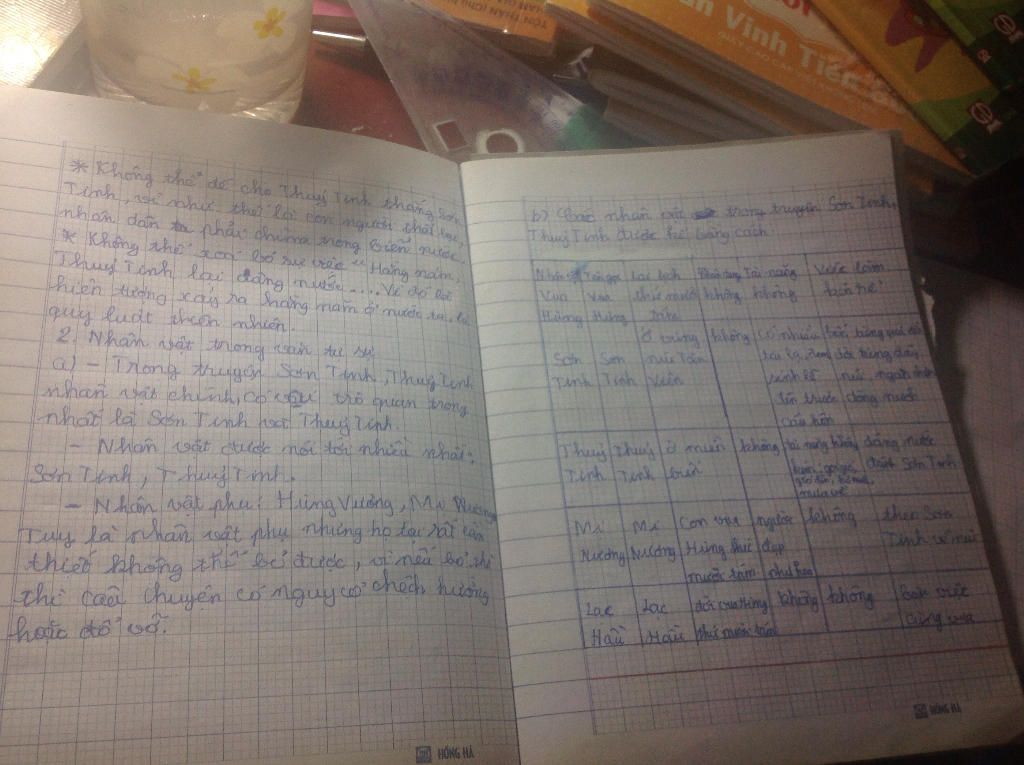 * Không thể để cho Thuỷ Tinh thắng Sơn
Tinh, vì như thế là con người thất bại,
nhân dân ta phải chìm trong biển nước.
* Không thể xoá bỏ sự việc " Hằng năm,
Thuỷ Tinh lại dâng nước.... Vì đó là
hiện tượng xảy ra hằng năm ở nước ta, là
quy luật thiên nhiên.
2. Nhân vật trong văn tự sự
a) - Trong truyện Sơn Tinh, Thuỷ Tinh
nhân vật chính, có vai trò quan trọng
nhất là Sơn Tinh và Thuỷ Tinh.
- Nhân vật được nói tới nhiều nhất:
Sơn Tinh, Thuỷ Tinh.
- Nhân vật phụ: Hùng Vương, Mị Nương
Tuy là nhân vật phụ nhưng họ lại rất cần
thiết không thể bỏ được, vì nếu bỏ thì
thì câu chuyện có nguy cơ chệch hướng
hoặc đổ vỡ.
HỒNG HÀ
b) Các nhân vật trong truyện Sơn Tinh,
Thuỷ Tinh được kể bằng cách
Nhân Tên gọi Lai lịch Tài năng Việc làm
Vua Vua thứ mười không không
Hùng Hùng tám
ở vùng không có nhiều
Sơn Sơn núi Tản
Tinh Tinh Viên
núi, ngăn chặn
dòng nước
cầu hôn
Thuỷ Thuỷ ở miền không tài năng dâng nước
Tinh Tinh biển đánh Sơn Tinh
Mị Mị con vua người không theo Sơn
Nương Nương Hùng thứ đẹp Tinh về núi
mười tám như hoa
Lạc Lạc đời vua Hùng không không bàn việc
Hầu Hầu thứ mười tám cùng vua
HỒNG HÀ
Vĩnh Tiến